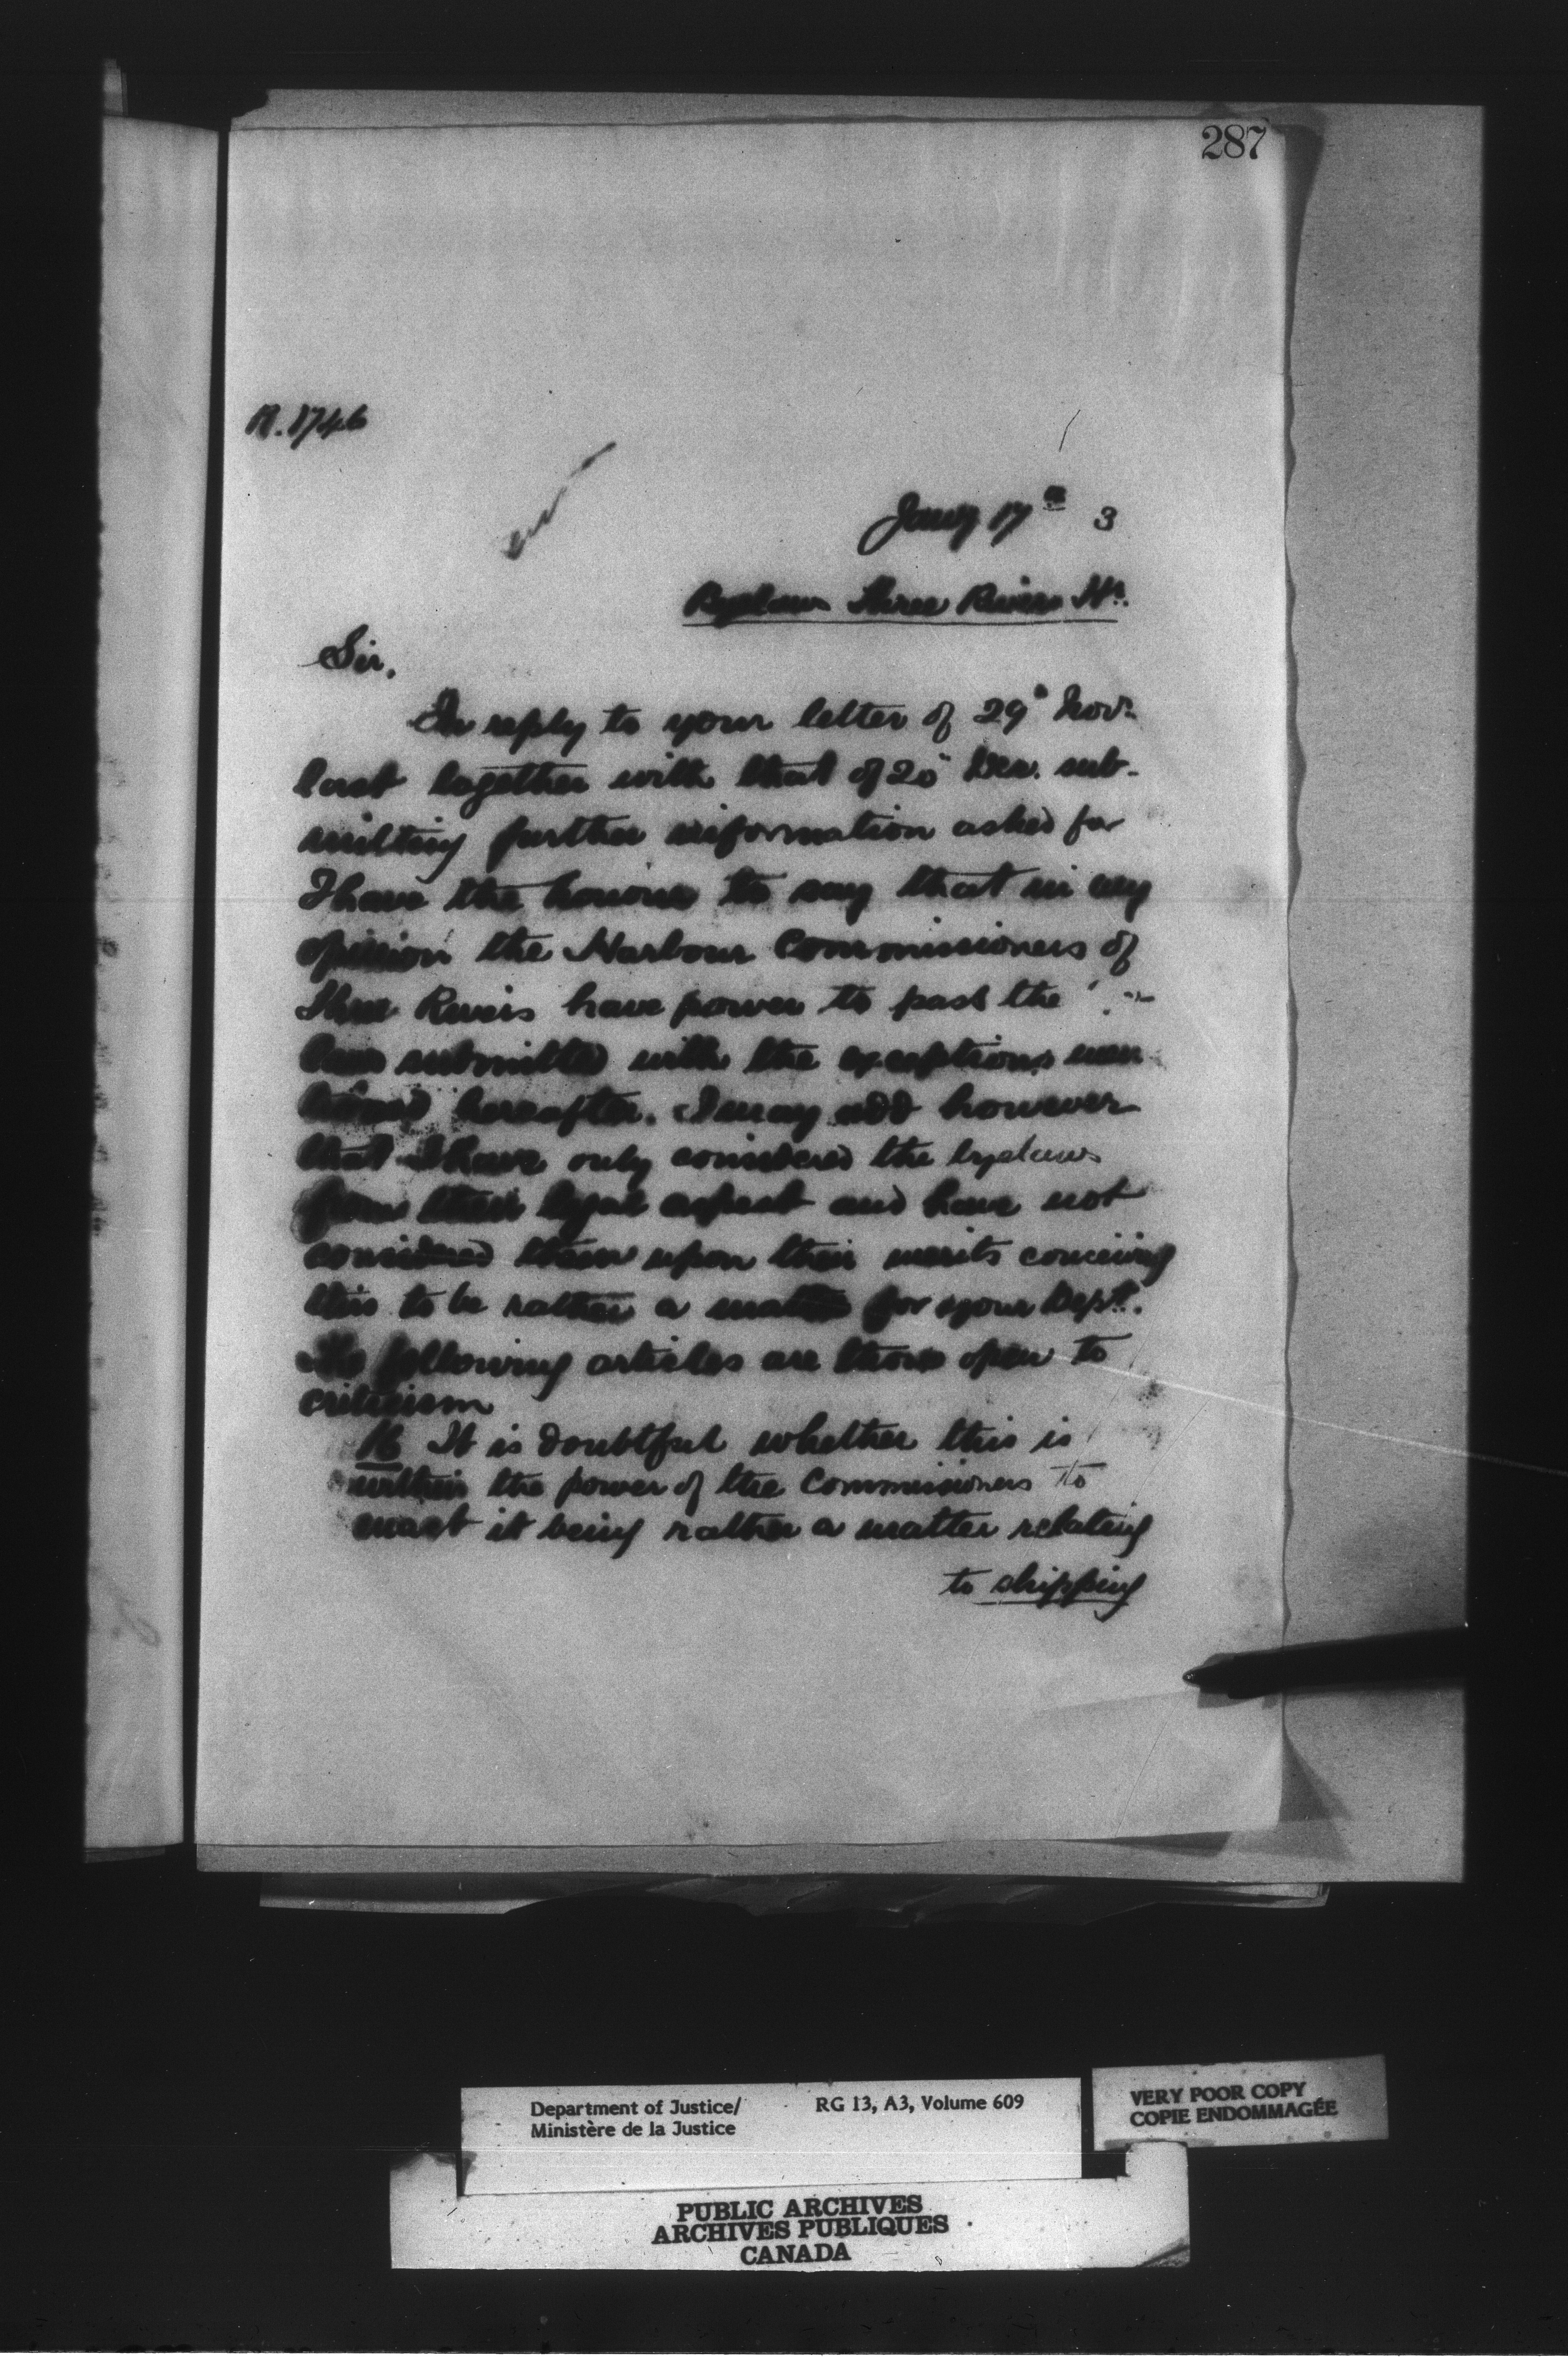 287
R. 1746
Jany 17th 3
Byelaws Three Rivers Hr.
Sir,
In reply to your letter of 29" Novr.
last together with that of 20" Dec. sub-
mitting further information asked for
I have the honour to say that in my
opinion the Harbour Commissioners of
Three Rivers have power to pass the
laws submitted with the exceptions men
tioned hereafter. I may add however
that I have only considered the byelaws
from their legal aspect and have not
considered them upon their merits conceiving
this to be rather a matter for your Dept.
The following articles are those open to
criticism
16 It is doubtful whether this is
within the power of the Commissioners to
enact it being rather a matter relating
to shipping
Department of Justice/ RG 13, A3, Volume 609
Ministère de la Justice
VERY POOR COPY
COPIE ENDOMMAGÉE
PUBLIC ARCHIVES
ARCHIVES PUBLIQUES
CANADA